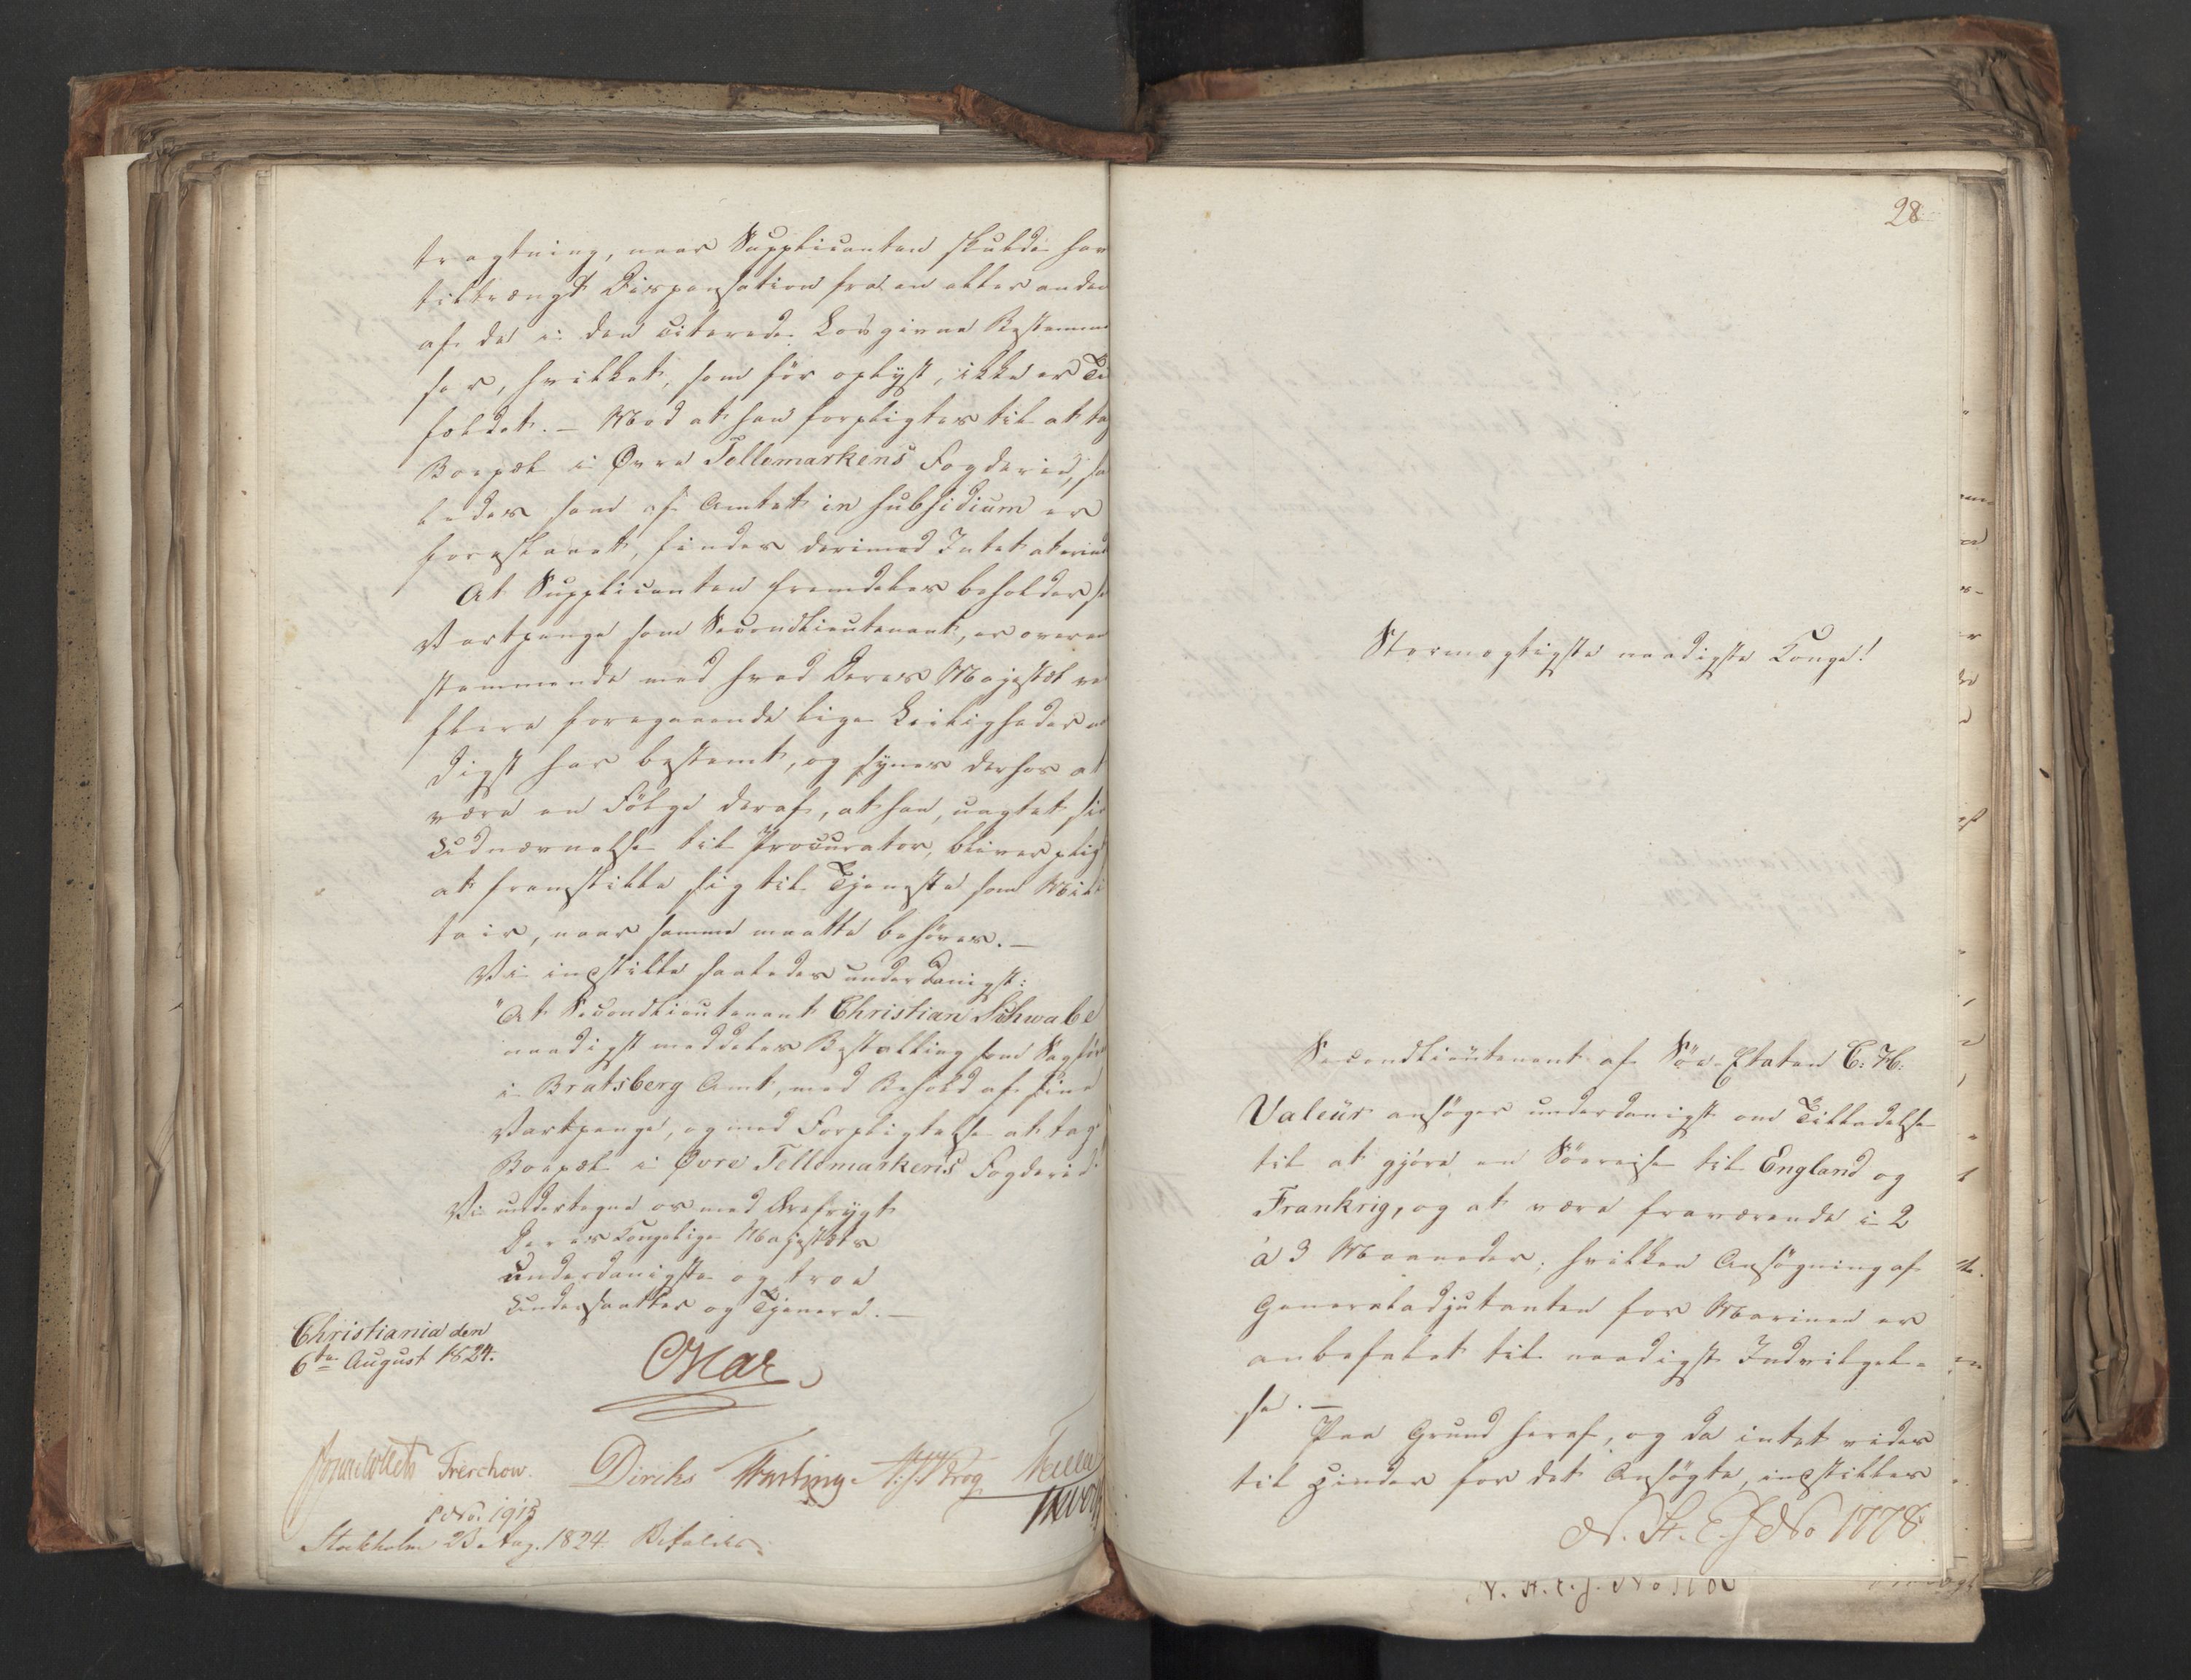 tragtning, naar Supplicanten skulde hav
tiltrængt Dispensation fra en eller anden
af de i den citerede Lov givne Bestemmel
ser, hvilket, som før oplyst, ikke er Til
fældet. – Mod at han forpligtes til at tag
Boepæl i Øvre Tellemarkens Fogderie, saa
ledes som af Amtet in subsidium er
foreslaaet, findes derimod Intet at erind
At Supplicanten fremdeles beholder si
Vartpenge som Secondlieutenant, er overeen
stemmende med hvad Deres Majestæt ve
flere foregaaende lige Leiligheder naa
digst har bestemt, og synes derhos at
være en Følge deraf, at han, uagtet sin
Udnævnelse til Procurator, bliver pligt
at fremstille sig til Tjeneste som Mili
tair, naar samme maatte behøves. –
Vi indstille saaledes underdanigst:
"At Secondlieutenant Christian Schwabe
naadigst meddeles Bestalling som Sagfør
i Bratsberg Amt, med Behold af sine
Vartpenge, og med Forpligtelse at tage
Boepæl i Øvre Tellemarkens Fogderie."
Vi undertegne os med Ærefrygt
Deres Kongelige Majestæts
underdanigste og troe
Undersaatter og Tjenere. –
Christiania den
6te August 1824.
Jonas Collett Treschow. Diriks Fasting
No. 1915
Stockholm 23 Aug. 1824. Bifaldes.
28
Stormægtigste naadigste Konge!
Secondlieutenant af Søe-Etaten C: H:
Valeur ansøger underdanigst om Tilladelse
til at gjøre en Søereise til England og
Frankrig, og at være fraværende i 2
à 3 Maaneder; hvilken Ansøgning af
Generaladjutanten for Marinen er
anbefalet til naadigst Indvilgel-
se. –
Paa Grund heraf, og da intet vides
til Hinder for det Ansøgte, indstilles
N. St. E. J No 1778